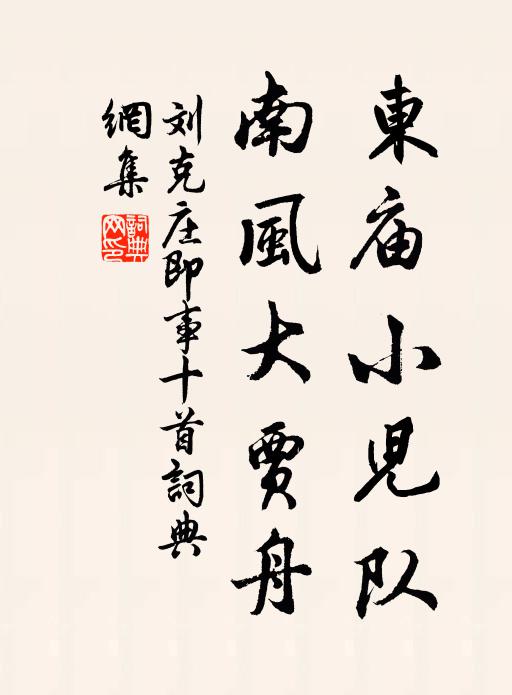 東庙小児队
南風大賈舟
刘克庄即事十首詞典
網集
詞典
网印